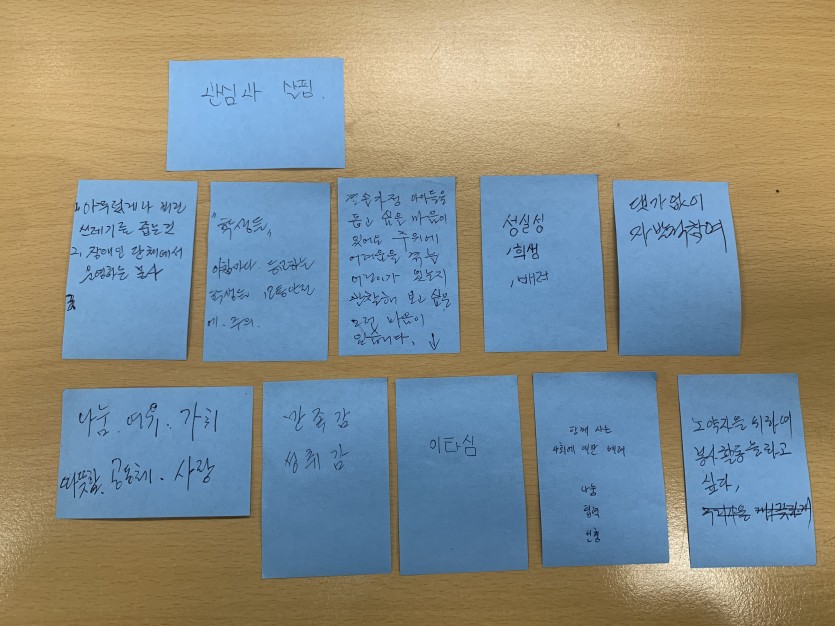 관심과 살핌.
1. 아무렇게나 버린
쓰레기를 줍는것
2. 장애인 단체에서
운영하는 봉사
"학생들"
아침마다 등교하는
학생들 교통안전
에. 주의.
결손가정 아이들을
돕고 싶은 마음이
있어도 주위에
어려움을 겪는
어린이가 있는지
관찰해 보고 싶은
그런 마음이
있습니다. ↓
성실성
, 희생
, 배려
댓가없이
자발적참여
나눔. 여유. 가치
따뜻함. 공동체. 사랑
만족감
성취감
이타심
함께 사는
사회에 대한 배려
나눔
협력
선행
노약자을 위하여
봉사활동을하고
싶다,